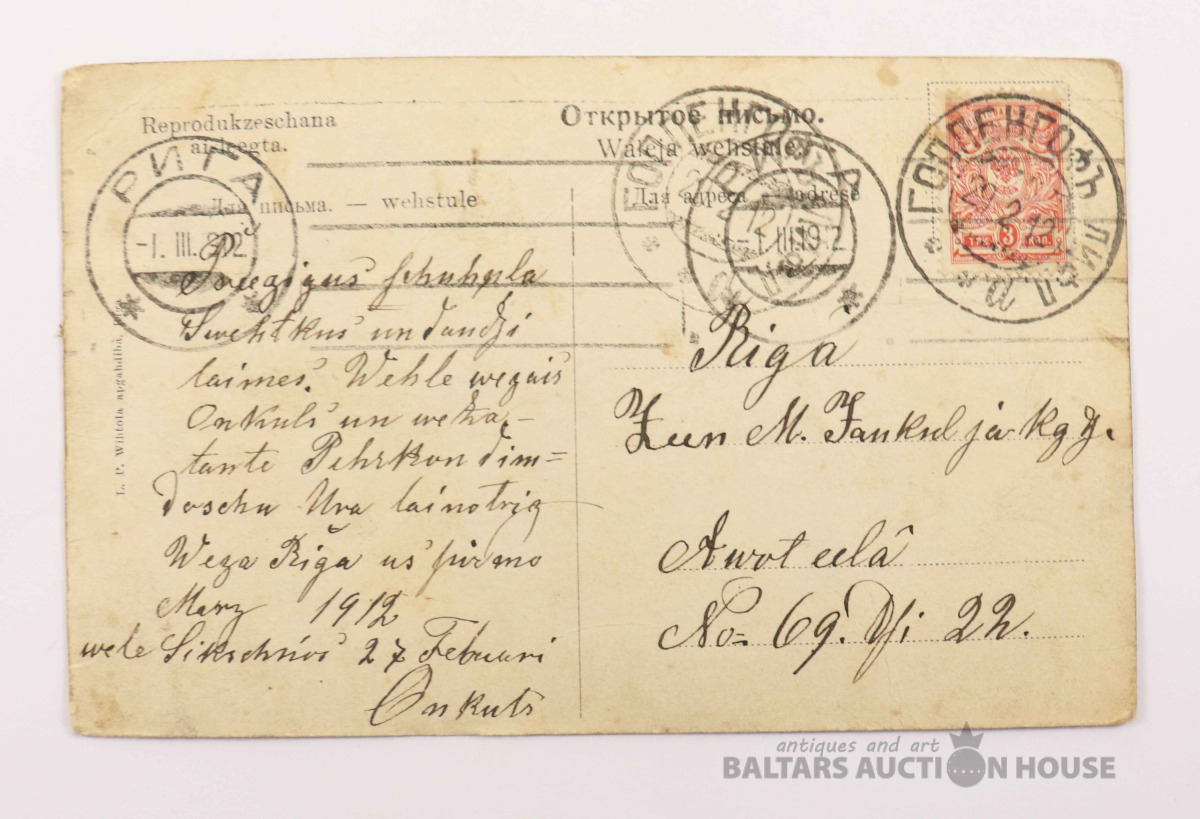 Reprodukzeschana
aisleegta.
Открытое письмо.
Waleja wehstule.
Для письма. — wehstule
Для адреса — adrese
РИГА
-1.III.
ГОППЕНГОФЪ ЛИФЛ.
2 12
ТРИ 3 КОП.
-1.III.1912
L. P. Wihtola apgahdibâ,
Preezigus
Swehtkus un daudzi
laimes. Wehle wezais
Onkuls un weza-
tante Pehrkon dim-
doschu Ura
Weza Riga us pirmo
Merz 1912
wele Sikschnös 27 Februari
Onkuls
Riga
Zeen M. Jankul jakg
Awot eelâ
No= 69. Dfi 22.
antiques and art
BALTARS AUCTION HOUSE